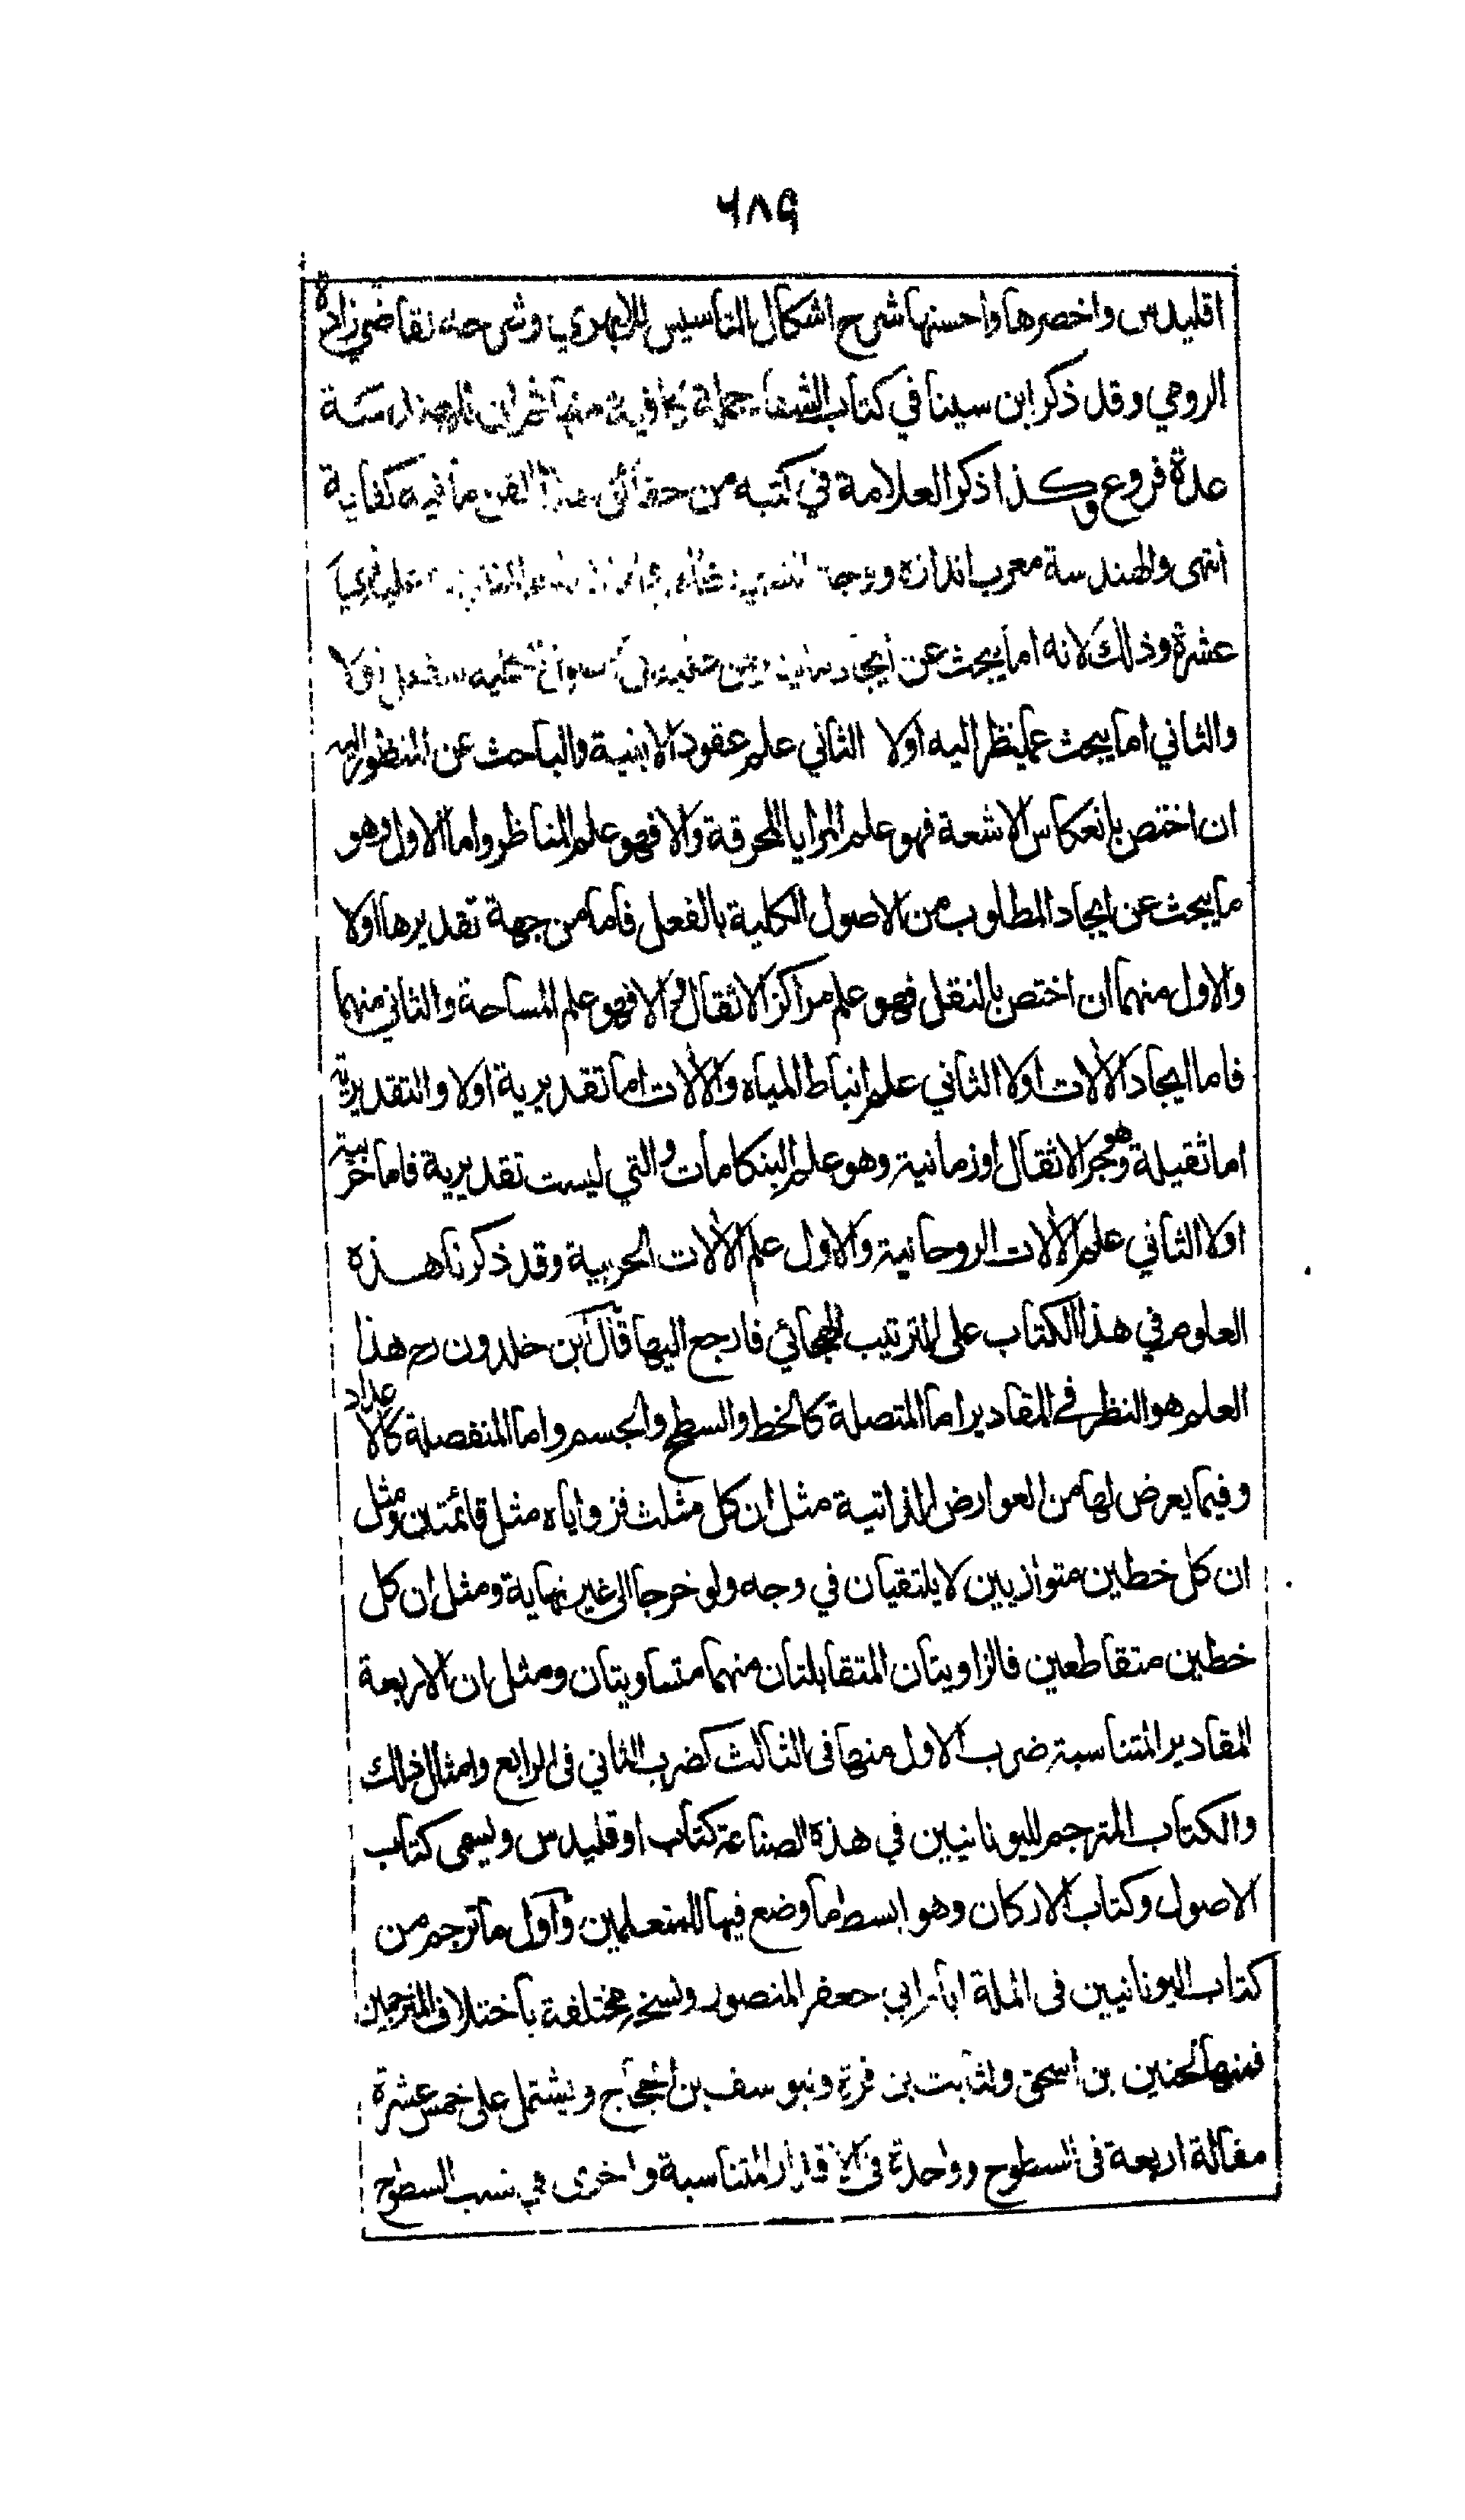 ٦٨٩
اقليدس واخصرها واحسنها شرح اشكال التاسيس للابهري وشرحه لقاضي زاده
الرومي وقد ذكر ابن سينا في كتاب الشفا جملة كافية منها ثم ان للهندسة
عدة فروع وكذا ذكر العلامة في كتبه من حقائق هذا الفن ما فيه كفاية
انتهى والهندسة معرب اندازه ووجه
عشرة وذلك لانه اما يبحث عن ايجاد عليه بالفعل اولا
والثاني اما يبحث عما ينظر اليه اولا الثاني علم عقود الابنية والباحث عن المنظور اليه
ان اختص بانعكاس الاشعة فهو علم المرايا المحرقة والا فهو علم المناظر واما الاول وهو
ما يبحث عن ايجاد المطلوب من الاصول الكلية بالفعل فاما من جهة تقديرها اولا
والاول منهما ان اختص بالنقل فهو علم مراكز الاثقال والا فهو علم المساحة والثاني منهما
فاما ايجاد الالات اولا الثاني علم انباط المياه والالات اما تقديرية اولا والتقديرية
اما ثقيلة وهو جر الاثقال او زمانية وهو علم البنكامات والتي ليست تقديرية فاما حربية
اولا الثاني علم الالات الروحانية والاول علم الالات الحربية وقد ذكرنا هذه
العلوم في هذا الكتاب على الترتيب الهجائي فارجع اليها قال ابن خلدون رح هذا
العلم هو النظر في المقادير اما المتصلة كالخط والسطح والجسم واما المنفصلة كالاعداد
وفيما يعرض لها من العوارض الذاتية مثل ان كل مثلث فزواياه مثل قائمتان ومثل
ان كل خطين متوازيين لا يلتقيان في وجه ولو خرجا الى غير نهاية ومثل ان كل
خطين متقاطعين فالزاويتان المتقابلتان منهما متساويتان ومثل ان الاربعة
المقادير المتناسبة ضرب الاول منها في الثالث كضرب الثاني في الرابع وامثال ذلك
والكتاب المترجم لليونانيين في هذه الصناعة كتاب اوقليدس ويسمى كتاب
الاصول وكتاب الاركان وهو ابسط ما وضع فيها للمتعلمين واول ما ترجم من
كتاب اليونانيين في الملة ايام ابي جعفر المنصور ونسخه مختلفة باختلاف المترجمين
فمنها لحنين بن اسحق ولثابت بن قرة وليوسف بن الحجاج ويشتمل على خمس عشرة
مقالة اربعة في السطوح وواحدة في الاقدار المتناسبة واخرى في نسب السطوح